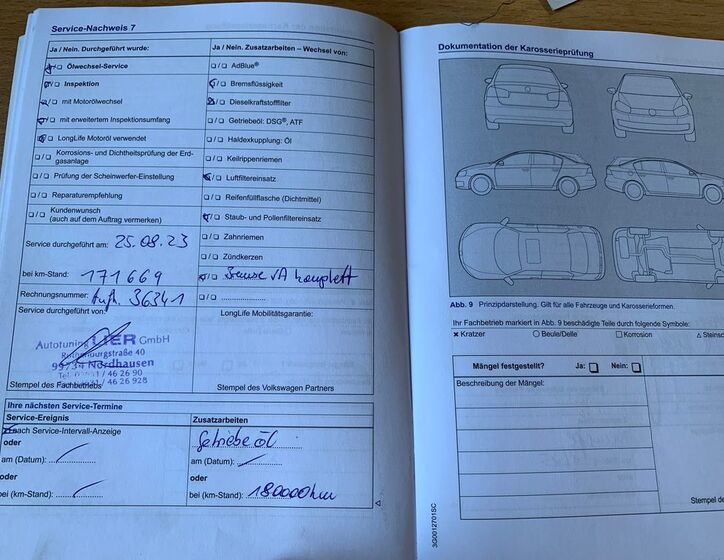 Service-Nachweis 7
Ja / Nein. Durchgeführt wurde:
Ölwechsel-Service
Inspektion
mit Motorölwechsel
mit erweitertem Inspektionsumfang
LongLife Motoröl verwendet
Korrosions- und Dichtheitsprüfung der Erd-
gasanlage
Prüfung der Scheinwerfer-Einstellung
Reparaturempfehlung
Kundenwunsch
(auch auf dem Auftrag vermerken)
Service durchgeführt am: 25.08.23
bei km-Stand: 171669
Rechnungsnummer: Aufn. 36341
Service durchgeführt von:
Autotuning UER GmbH
straße 40
99734 Nordhausen
/ 46 26 90
/ 46 26 928
Stempel des Fachbetriebs
Ja / Nein. Zusatzarbeiten – Wechsel von:
AdBlue®
Bremsflüssigkeit
Dieselkraftstofffilter
Getriebeöl: DSG®, ATF
Haldexkupplung: Öl
Keilrippenriemen
Luftfiltereinsatz
Reifenfüllflasche (Dichtmittel)
Staub- und Pollenfiltereinsatz
Zahnriemen
Zündkerzen
Bremse VA komplett
LongLife Mobilitätsgarantie:
Stempel des Volkswagen Partners
Ihre nächsten Service-Termine
Service-Ereignis
nach Service-Intervall-Anzeige
oder
am (Datum):
oder
bei (km-Stand):
Zusatzarbeiten
Getriebeöl
am (Datum):
oder
bei (km-Stand): 180000km
Dokumentation der Karosserieprüfung
Abb. 9 Prinzipdarstellung. Gilt für alle Fahrzeuge und Karosserieformen.
Ihr Fachbetrieb markiert in Abb. 9 beschädigte Teile durch folgende Symbole:
Kratzer Beule/Delle Korrosion Steinsc
Mängel festgestellt? Ja: Nein:
Beschreibung der Mängel:
Stempel de
3G0012701SC